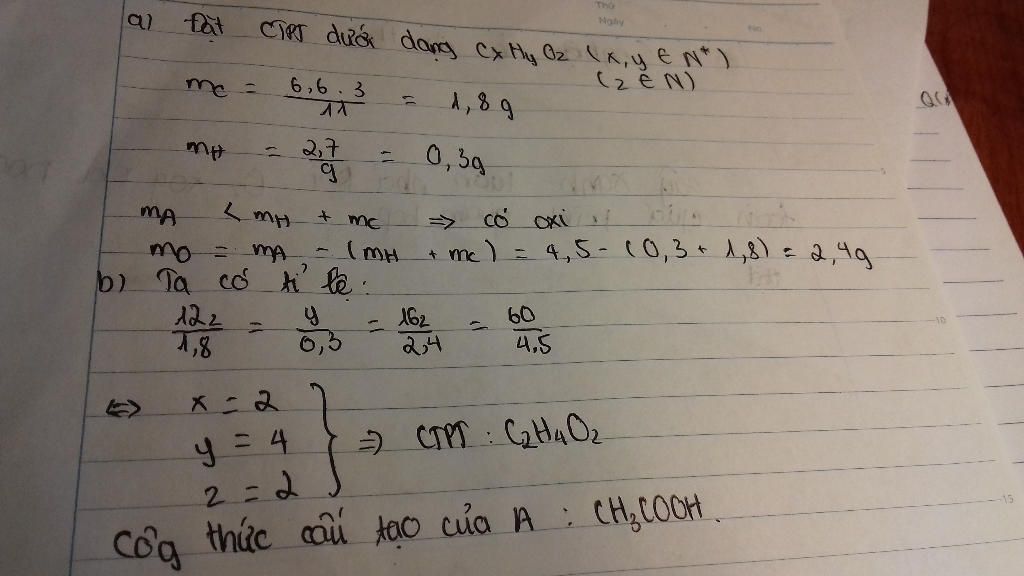 Thứ
Ngày
No.
a) Đặt CTPT dưới dạng CxHyOz (x,y ∈ N*)
(z ∈ N)
mC = 6,6.3/11 = 1,8g
mH = 2,7/9 = 0,3g
mA < mH + mC ⇒ có oxi
mO = mA - (mH + mC) = 4,5 - (0,3 + 1,8) = 2,4g
b) Ta có tỉ lệ:
12z/1,8 = y/0,3 = 16z/2,4 = 60/4,5
⇔ x = 2
y = 4 } ⇒ CTPT : C2H4O2
z = 2
Côg thức cấu tạo của A : CH3COOH.
5
10
15